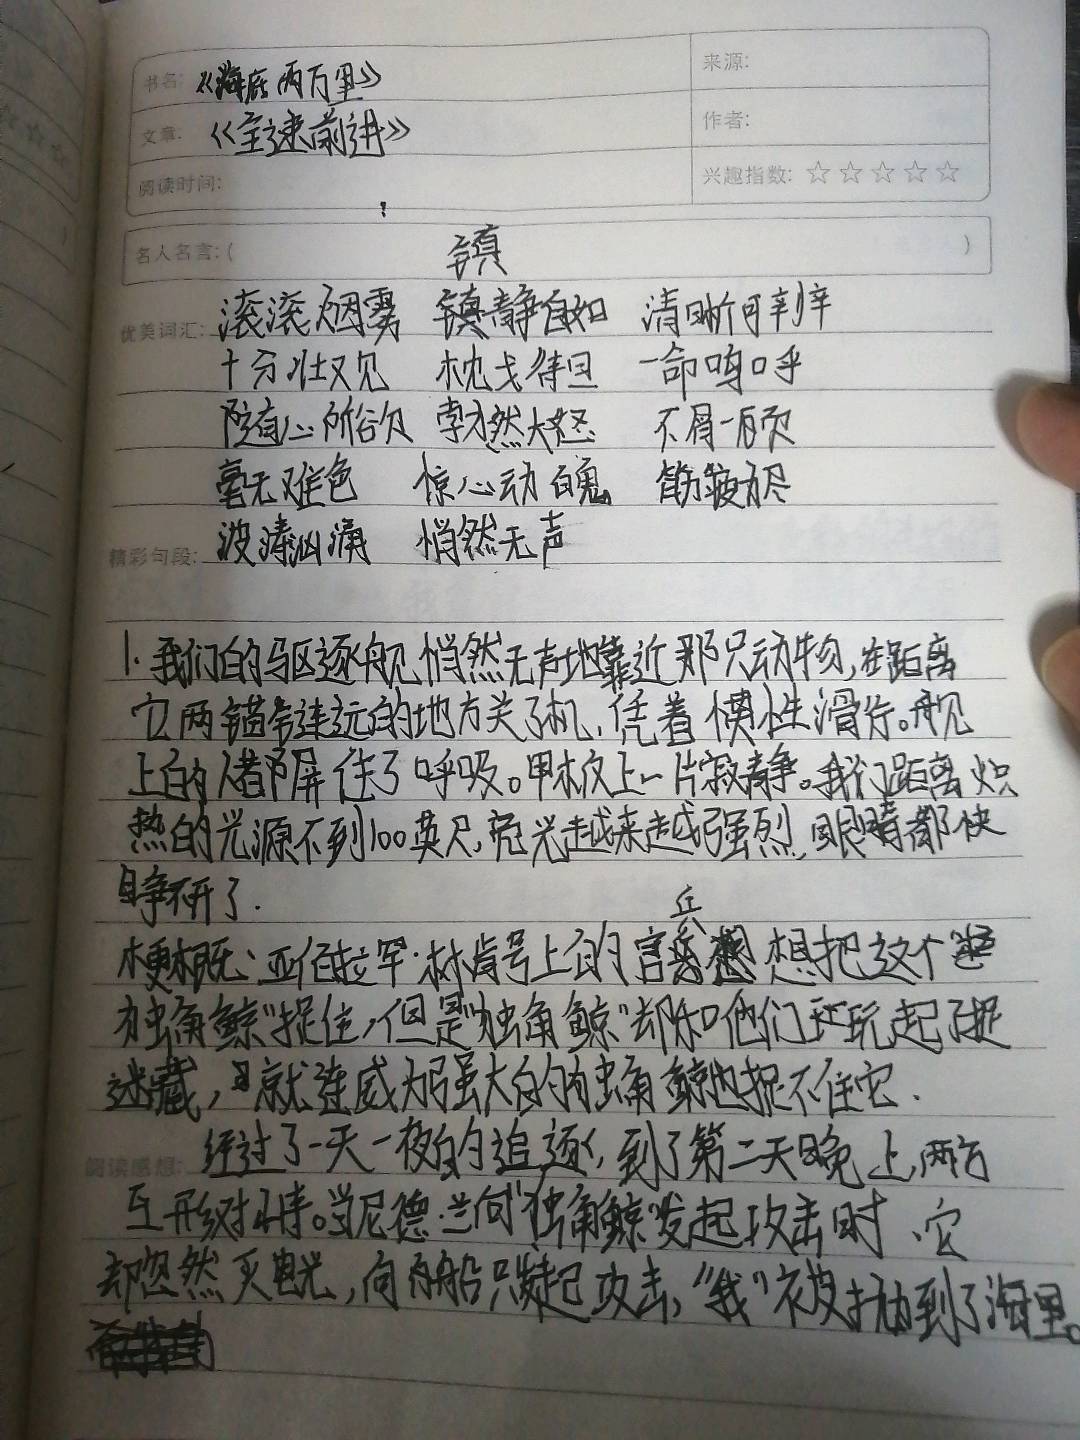 书名: 《海底两万里》
来源:
文章: 《全速前进》
作者:
阅读时间:
兴趣指数: ☆☆☆☆☆
名人名言:( 镇 )
优美词汇: 滚滚烟雾 镇静自如 清晰可辨
十分壮观 枕戈待旦 一命呜呼
随心所欲 勃然大怒 不屑一顾
毫无难色 惊心动魄 筋疲力尽
精彩句段: 波涛汹涌 悄然无声
1.我们的驱逐舰悄然无声地靠近那只动物,在距离
它两锚链远的地方关了机,凭着惯性滑行。舰
上的人都屏住了呼吸。甲板上一片寂静。我们距离炽
热的光源不到100英尺,光越来越强烈,眼睛都快
睁不开了.
兵
梗概:亚伯拉罕·林肯号上的官 想把这个
独角鲸"捉住,但是"独角鲸"却和他们玩起了捉
迷藏,就连威力强大的独角鲸也捉不住它.
阅读感想: 经过了一天一夜的追逐,到了第二天晚上,两方
互形对持。当尼德·兰向"独角鲸"发起攻击时,它
却忽然灭电光,向船只发起攻击,"我"被抽到了海里。